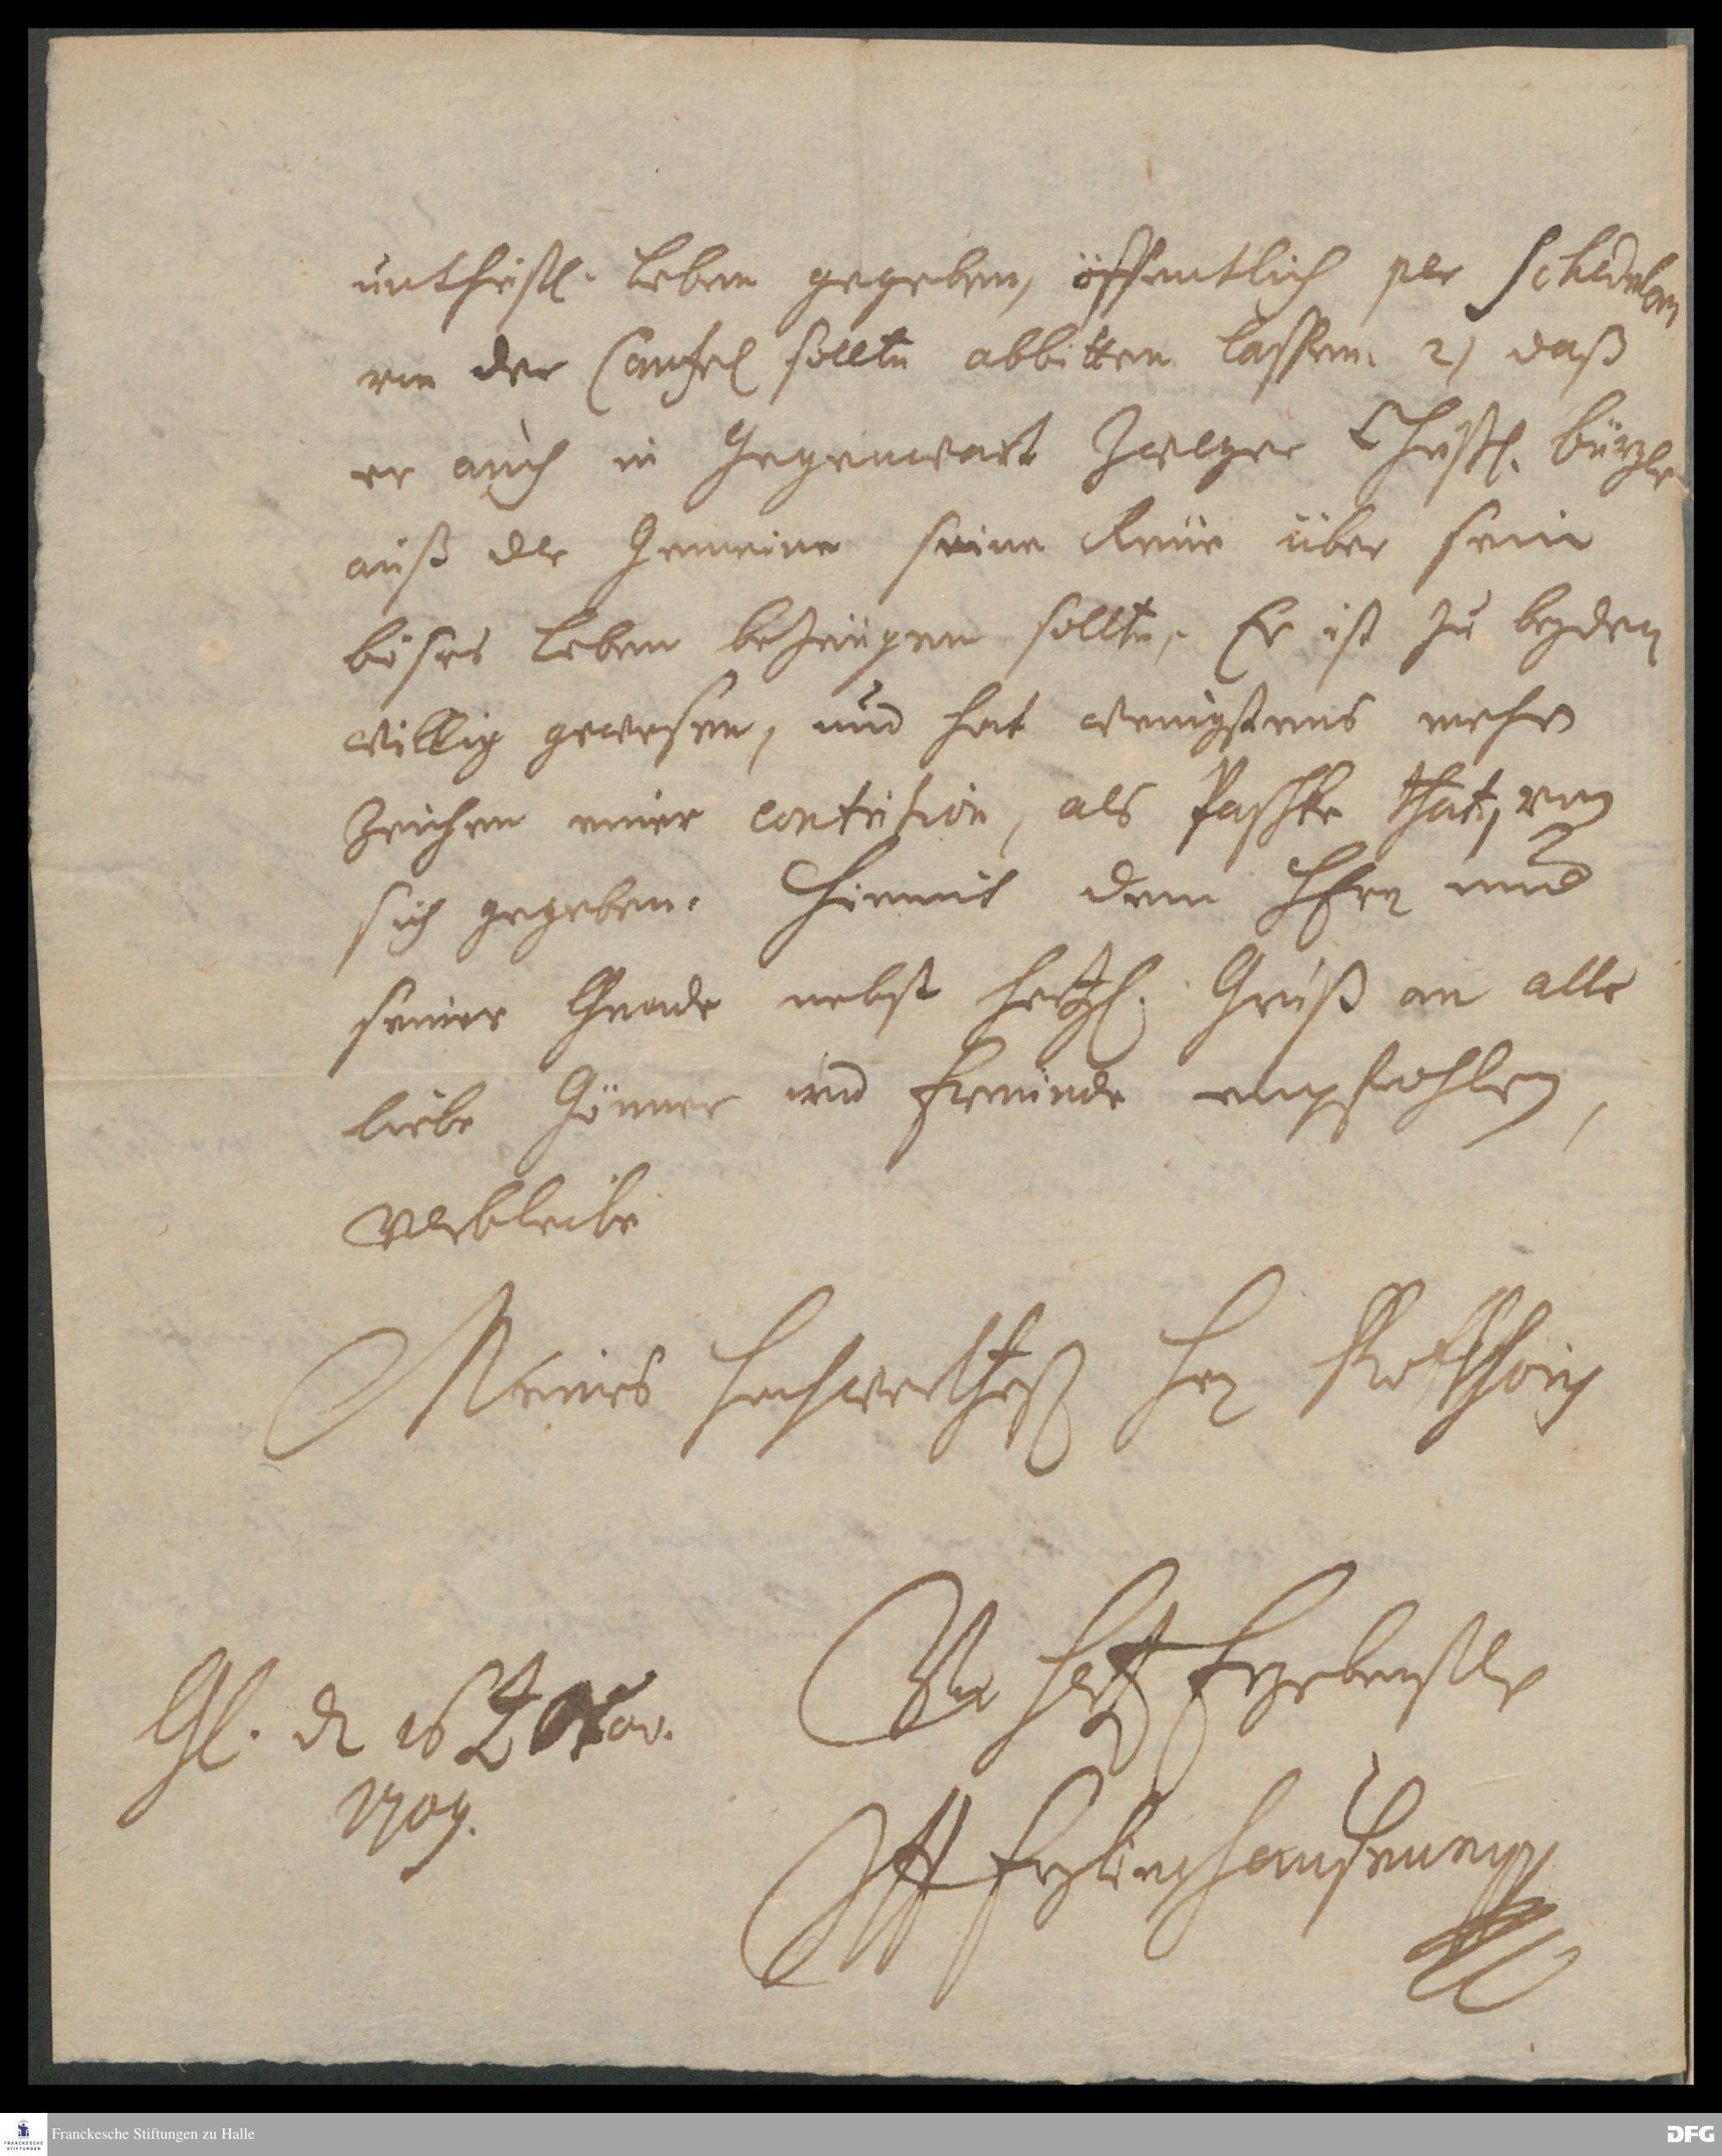 unchristl. Leben gegeben, öffentlich per Schedulam
von der Cantzel sollte abbitten lassen. 2) daß
er auch in Gegenwart zweyer Christl. Bürger
auß der Gemeine seine Reue über sein
böses Leben bezeugen sollte. Er ist zu beyden
willig gewesen, und hat wenigstens mehr
Zeichen einer contrition, als Paschke that, von
sich gegeben. Hiemit dem HErrn und
seiner Gnade nebst hertzl. Gruß an alle
liebe Gönner und Freunde empfohlen,
verbleibe
Meines hochwerthest Hrn
Gl. d. 16 Nov.
1709.